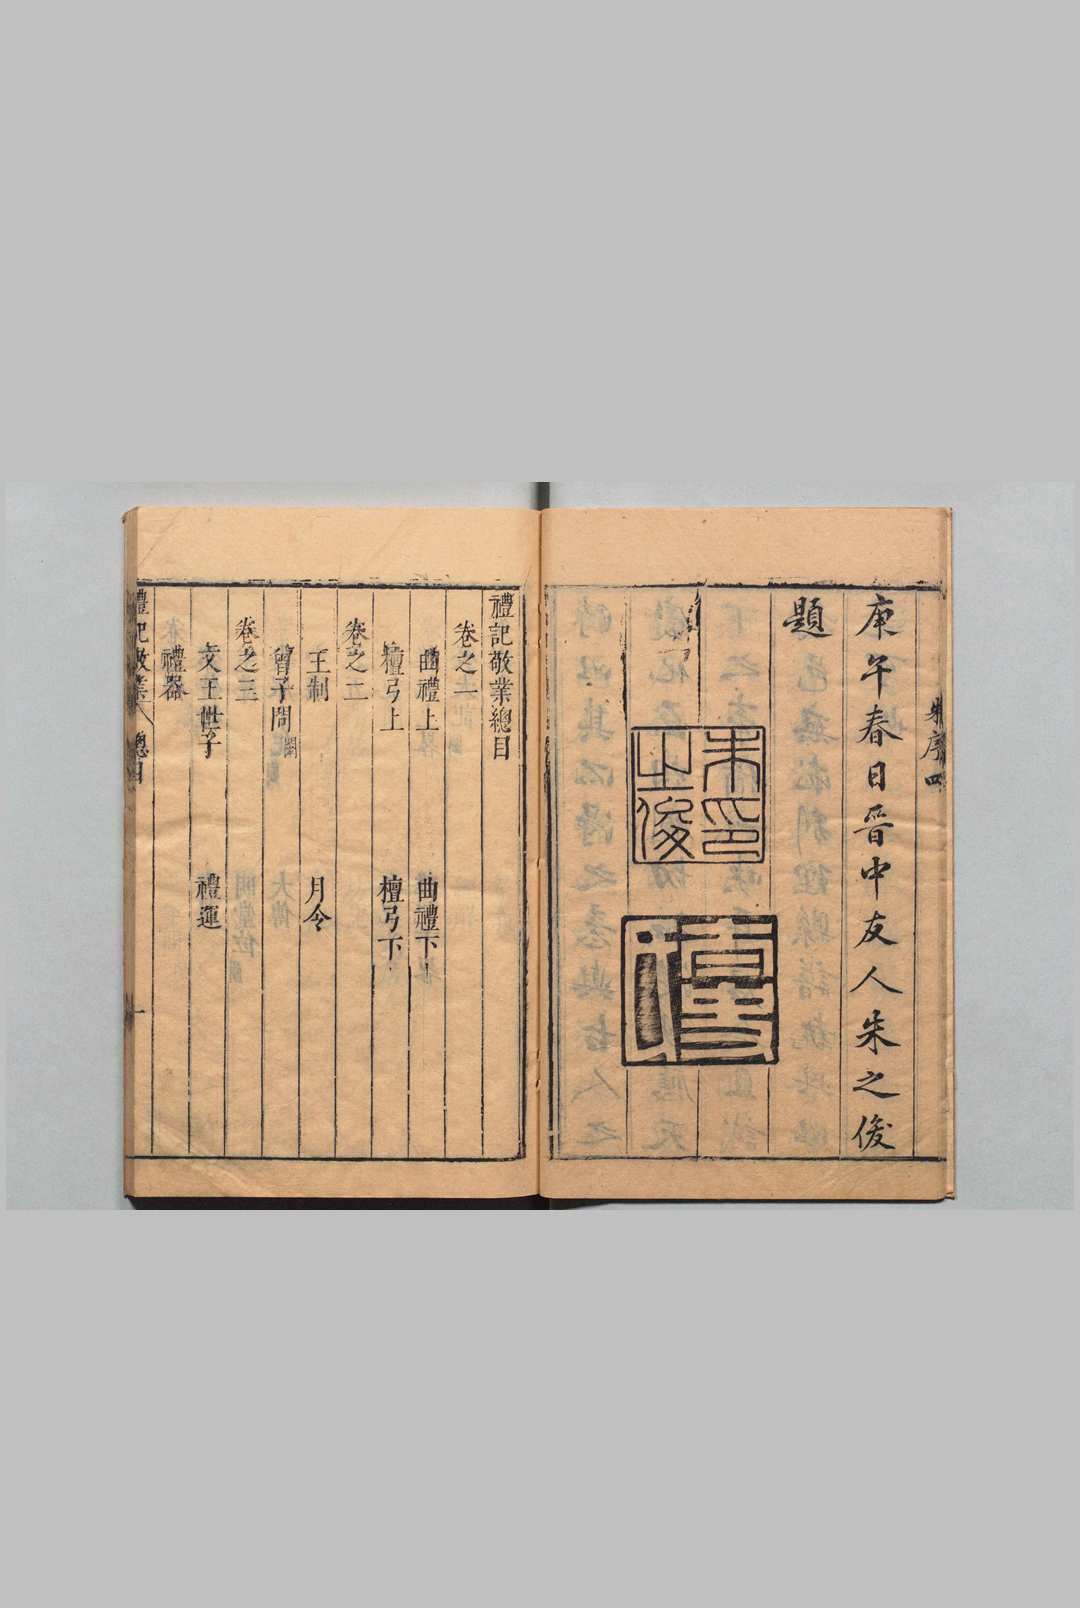 庚午春日晉中友人朱之俊
題
朱印之俊
朱序 四
禮記敬業總目
卷之一
曲禮上 曲禮下
檀弓上 檀弓下
卷之二
王制 月令
曾子問
卷之三
文王世子 禮運
禮器
禮記敬業 總目 一